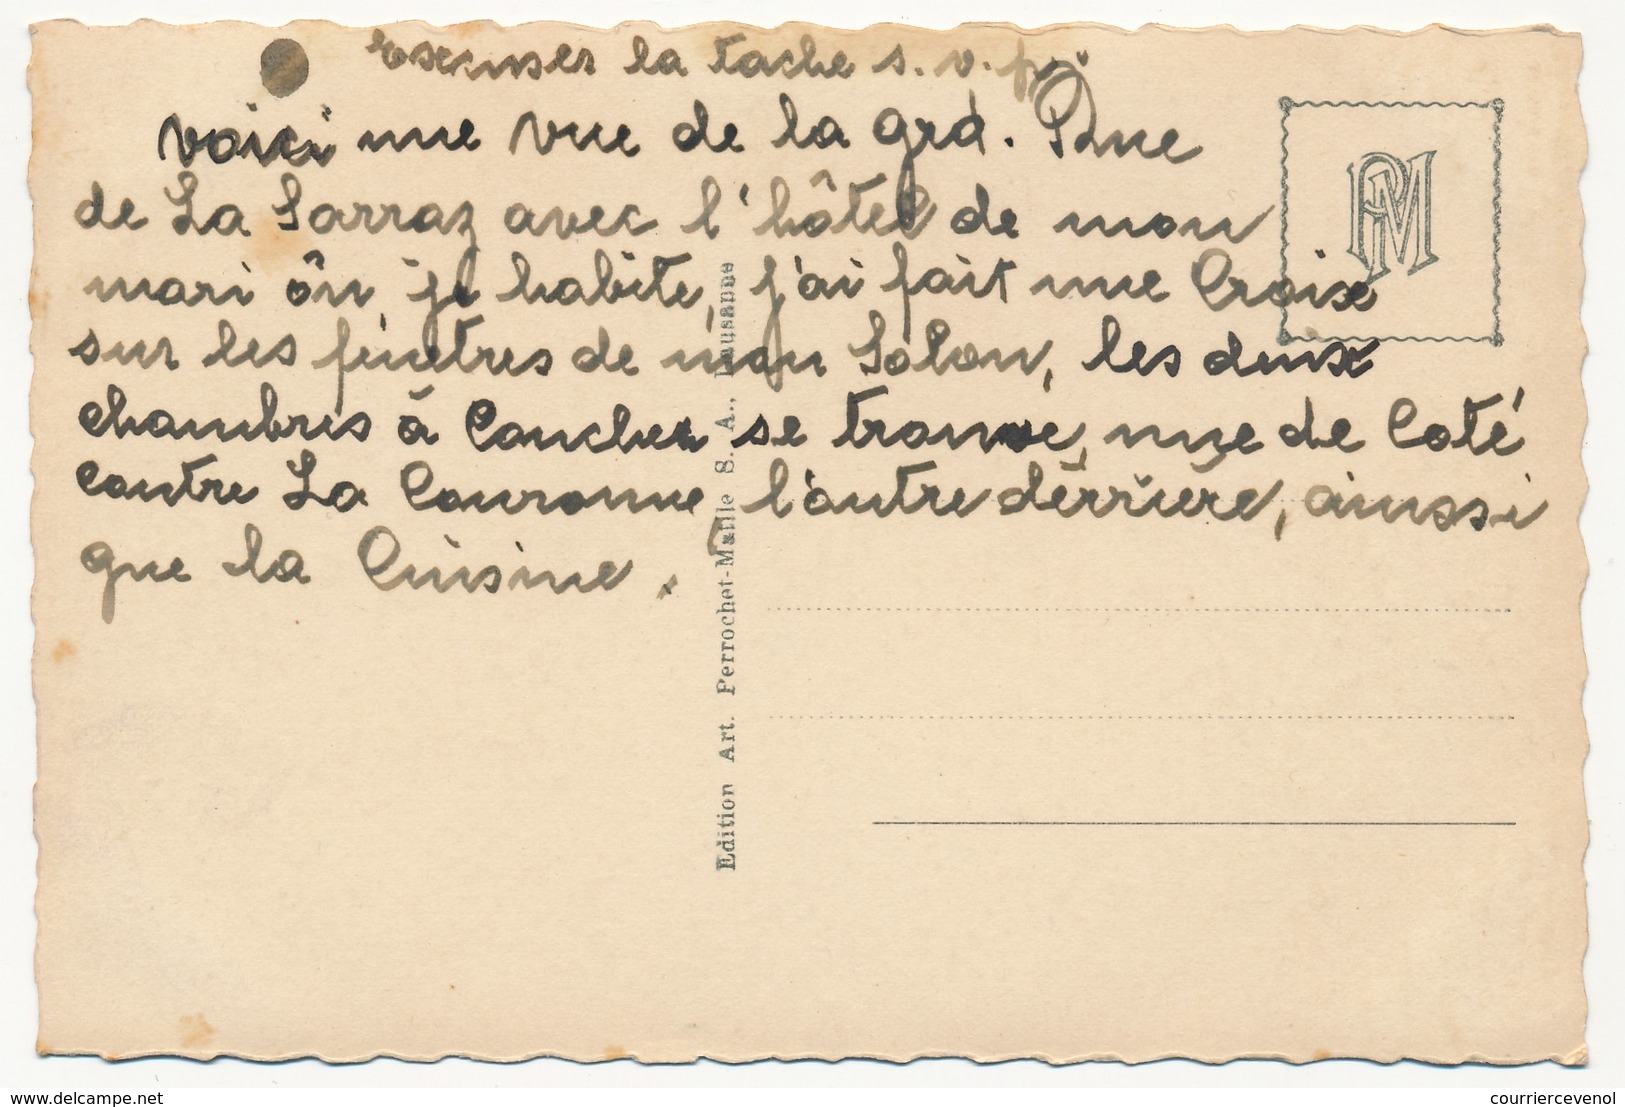 excuser la tache s.v.p.
voici une vue de la grd. Rue
de La Sarraz avec l'hôtel de mon
mari ôu je habite, j'ai fait une Croix
sur les fenetres de mon Salon, les deux
chambres à Coucher se trouve, une de Coté
contre La Couronne, l'autre dérriére, ainssi
que la Cuisine.
PM
Edition Art. Perrochet-Matile S. A., Lausanne
www.delcampe.net
courriercevenol